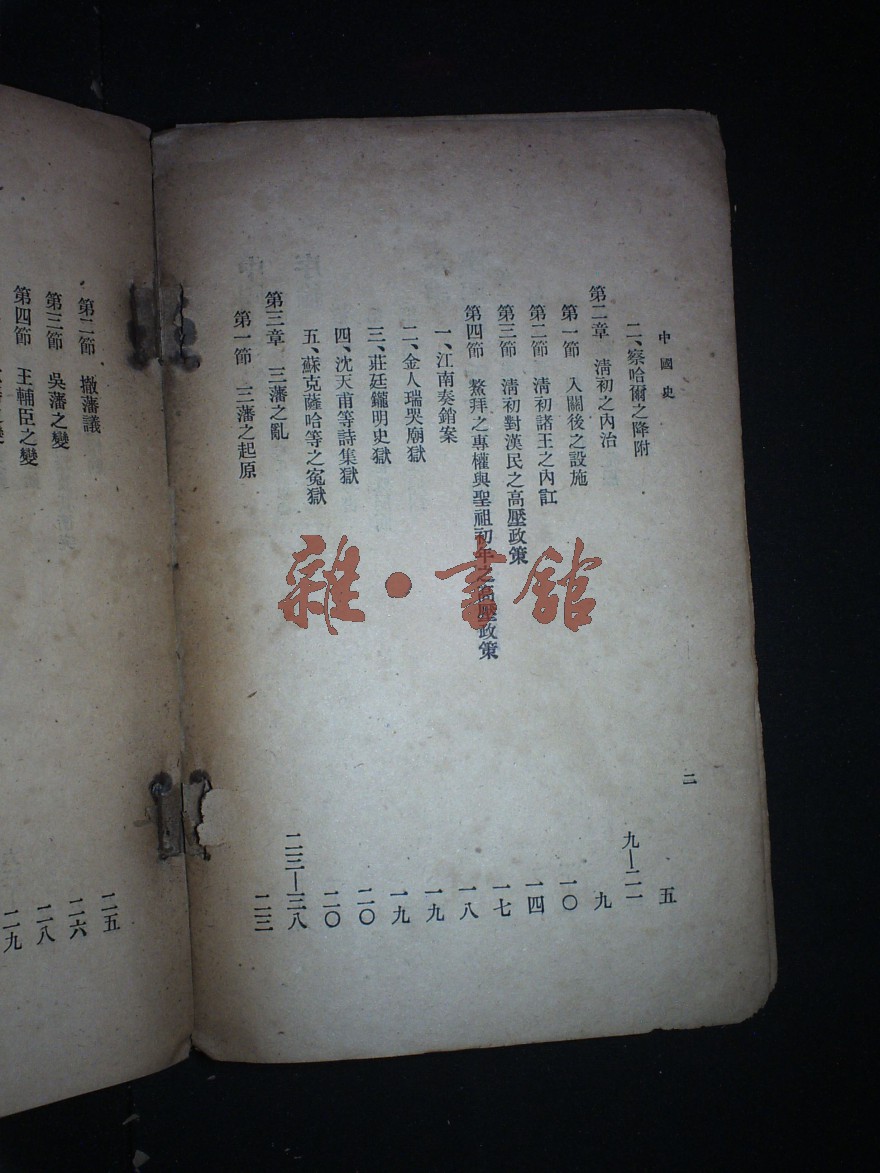 中國史
二
二、察哈爾之降附 五
第二章 清初之內治 九—二一
第一節 入關後之設施 九
第二節 清初諸王之內訌 一〇
第三節 清初對漢民之高壓政策 一四
第四節 鰲拜之專權與聖祖初年之高壓政策 一七
一、江南奏銷案 一八
二、金人瑞哭廟獄 一九
三、莊廷鑨明史獄 一九
四、沈天甫等詩集獄 二〇
五、蘇克薩哈等之冤獄 二〇
第三章 三藩之亂 二二—三八
第一節 三藩之起原 二三
第二節 撤藩議 二五
第三節 吳藩之變 二六
第四節 王輔臣之變 二八
二九
雜·書館